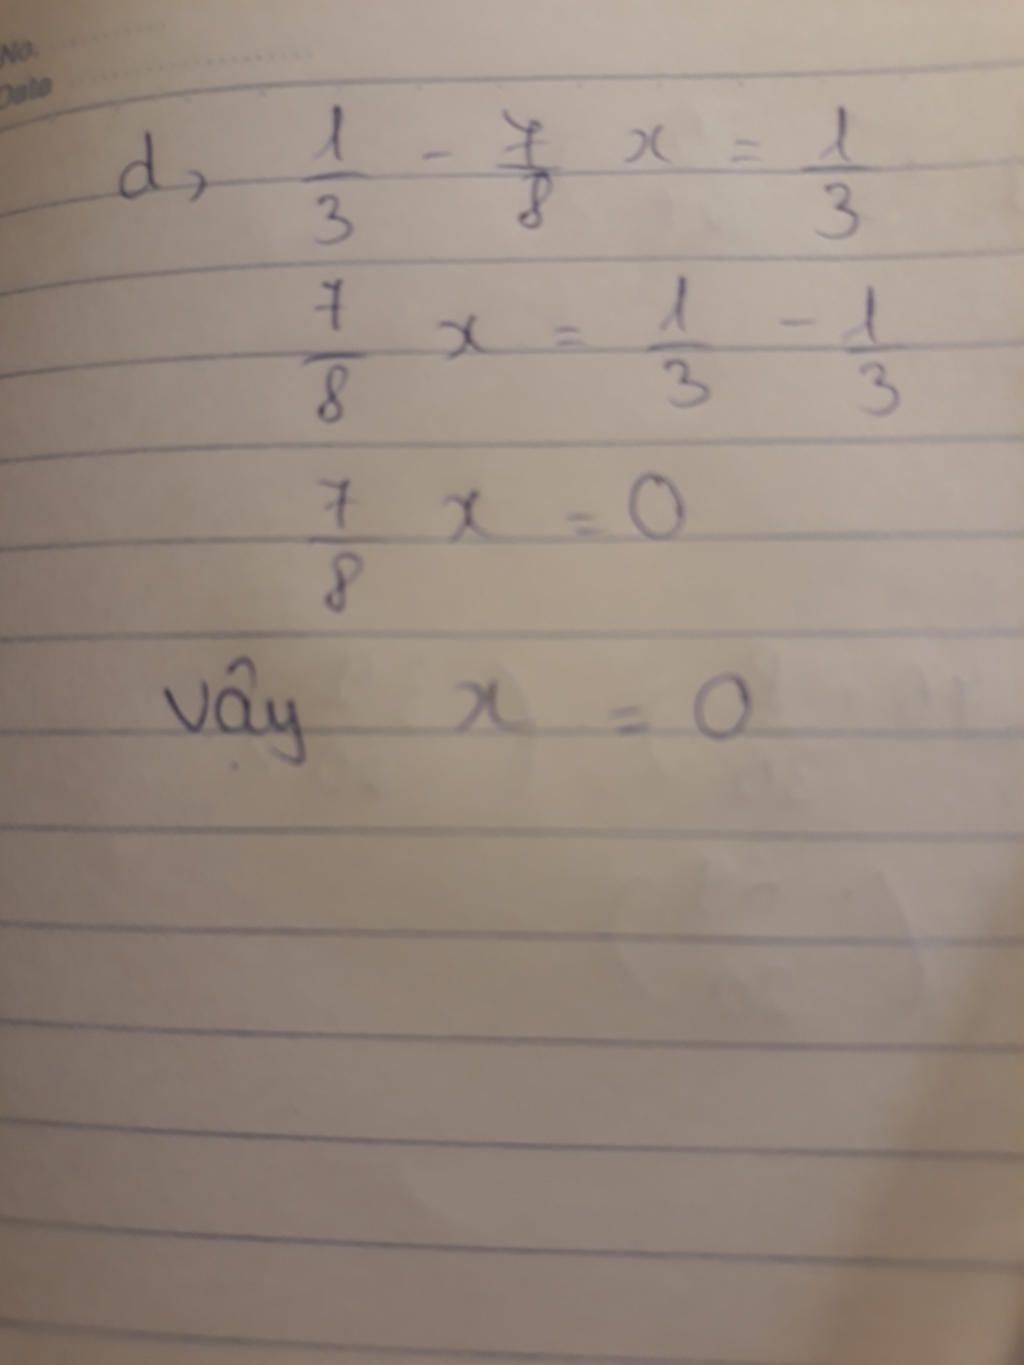 No.
Date
d, 1/3 - 7/8 x = 1/3
7/8 x = 1/3 - 1/3
7/8 x = 0
vậy x = 0